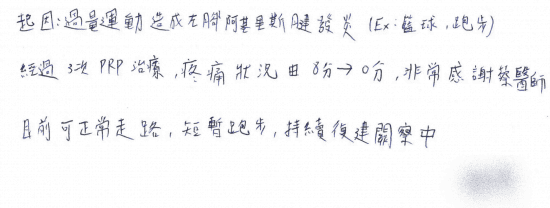 起因:過量運動造成左腳阿基里斯腱發炎 (Ex:籃球,跑步)
經過 3次 PRP 治療,疼痛狀況由 8分→0分,非常感謝蔡醫師
目前可正常走路,短暫跑步,持續復建觀察中